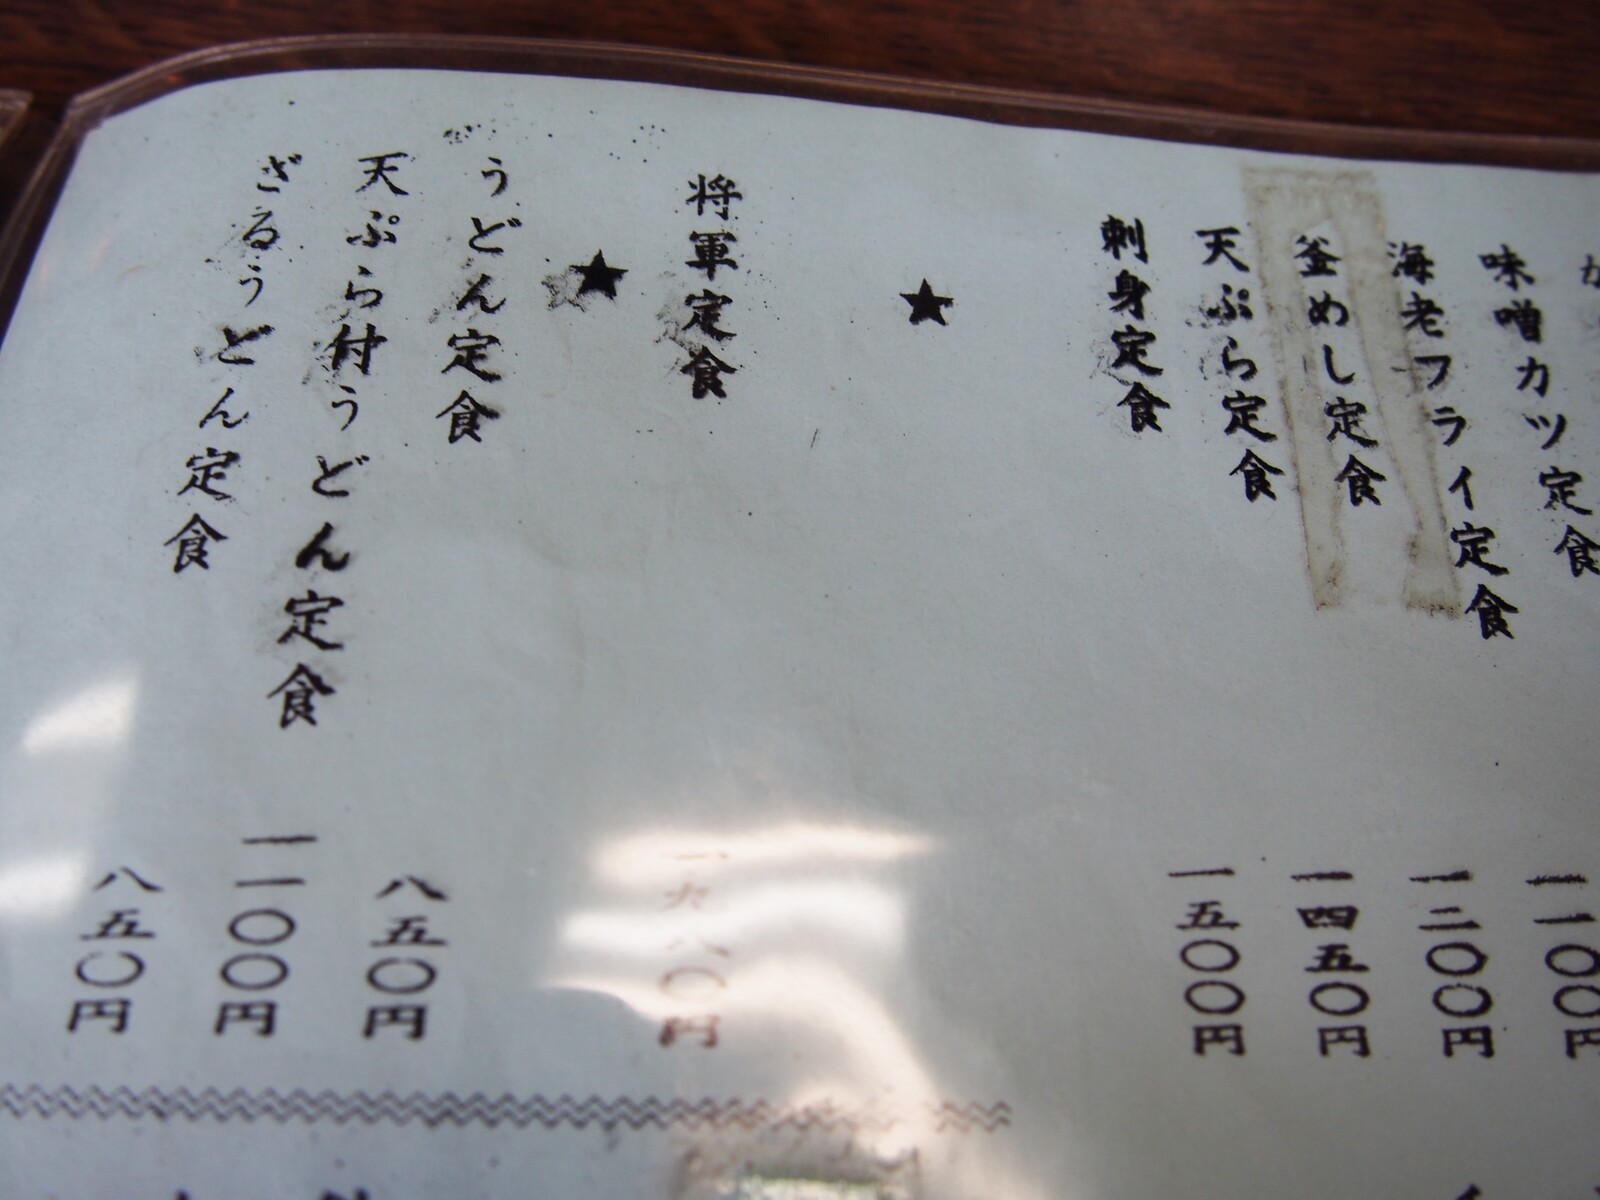 味噌カツ定食
海老フライ定食 一一〇〇円
釜めし定食 一二〇〇円
天ぷら定食 一四五〇円
刺身定食 一五〇〇円
★
将軍定食 一九八〇円
★
うどん定食 八五〇円
天ぷら付うどん定食 一一〇〇円
ざるうどん定食 八五〇円